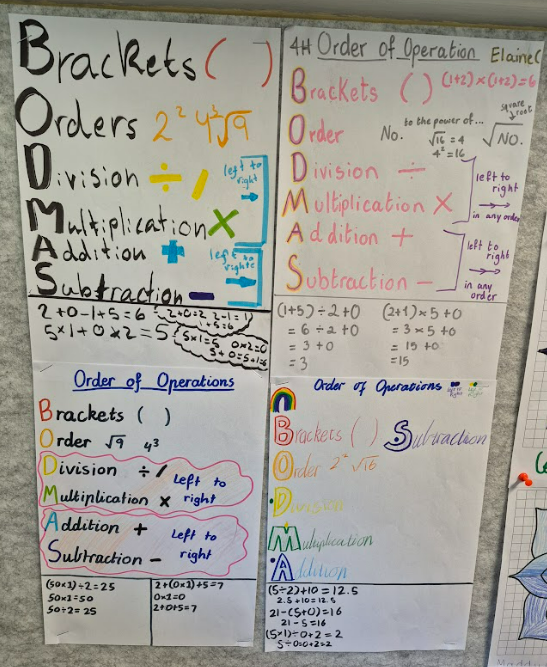 Brackets ( )
Orders 2² 4³ √9
Division ÷ /
left to
right
Multiplication ×
Addition +
left to
right
Subtraction −
2+0-1+5=6
2+0=2 2-1=1
1+5=6
5×1+0×2=5
5×1=5 0×2=0
5+0=5
4H Order of Operation Elaine C
Brackets ( ) (1+2)×(1+2)=6
Order No. to the power of...
√16 = 4
4² = 16
square
root
√NO.
Division ÷
Multiplication ×
left to
right
in any order
Addition +
Subtraction −
left to
right
in any
order
(1+5)÷2+0
= 6÷2+0
= 3+0
= 3
(2+1)×5+0
= 3×5+0
= 15+0
=15
Order of Operations
Brackets ( )
Order √9 4³
Division ÷ /
Multiplication ×
Left to
right
Addition +
Subtraction −
Left to
right
(50×1)÷2=25
50×1=50
50÷2=25
2+(0×1)+5=7
0×1=0
2+0+5=7
Order of Operations
Brackets ( ) Subtraction
Order 2² √16
Division
Multiplication
Addition
(5÷2)+10=12.5
2.5+10=12.5
21-(5+0)=16
21-5=16
(5×1)÷0+2=2
5÷0=0+2=2